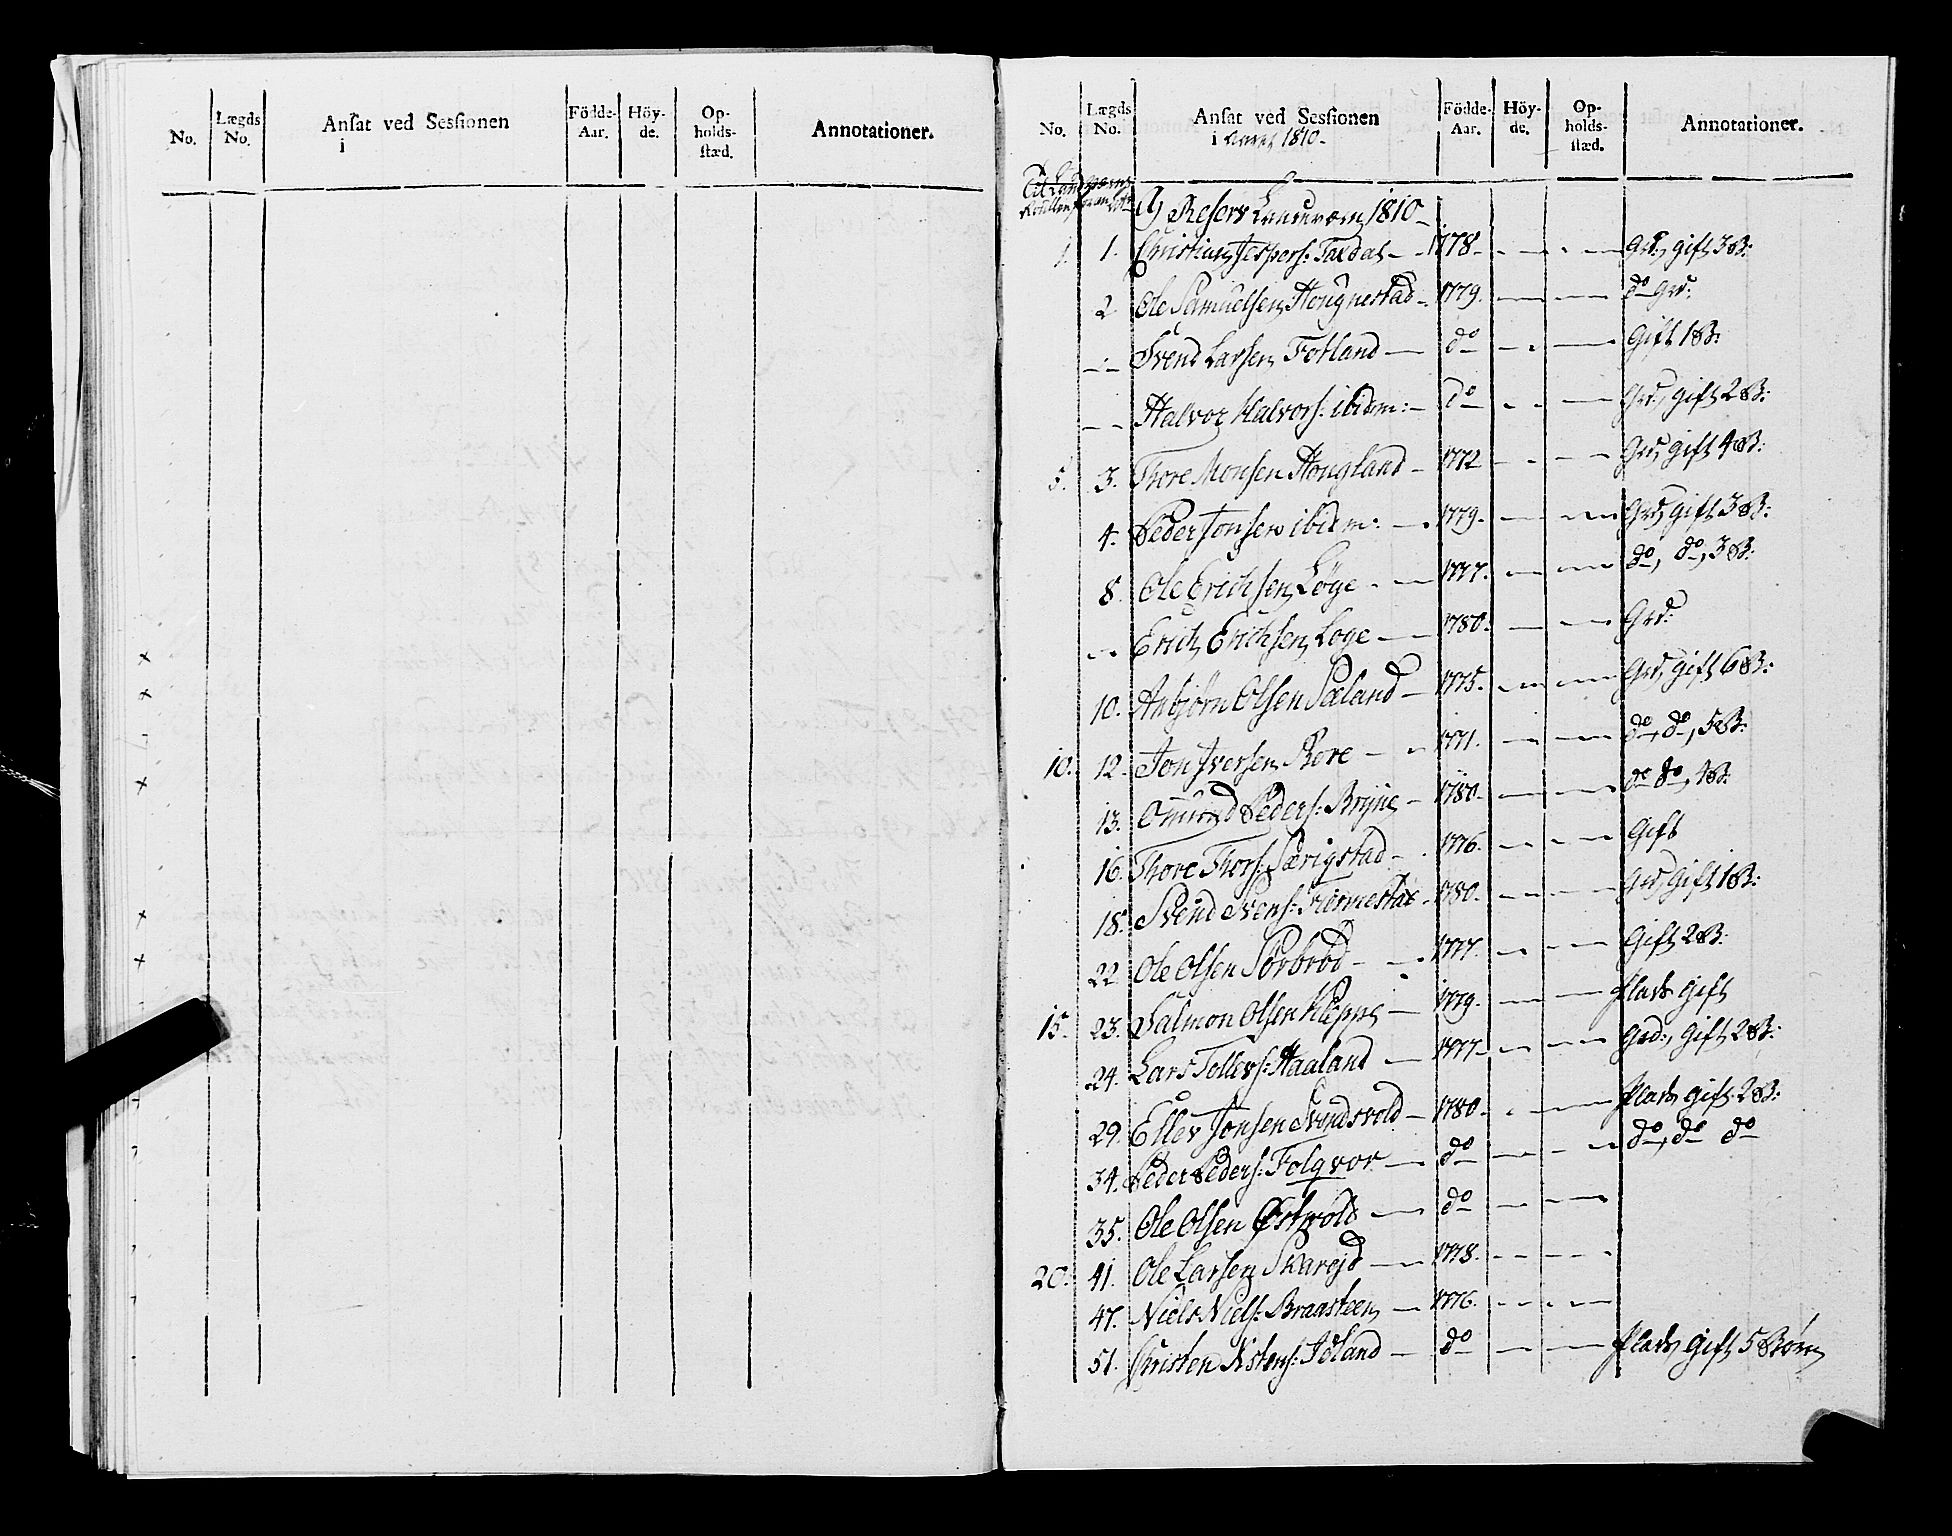 No. Lægds No. Ansat ved Sessionen i Födde-Aar. Höy-de. Op-holds-stæd. Annotationer.
No. Lægds No. Ansat ved Sessionen i Aaret 1810. Födde-Aar. Höy-de. Op-holds-stæd. Annotationer.
Til Landværns
Rullen
a) Reserv Landværn 1810
1. 1. Christian Jespers: Taxdal 1778. Grd: gift 3 B:
2 Ole Samuelsen Hougnestad 1779. do Grd:
Svend Larsen Fotland do Gift 1 B:
Halvor Halvors: ibidem: do Grd, gift 2 B:
5. 3. Thore Monsen Hougland 1772 Grd, gift 4 B:
4. Peder Jonsen ibidem: 1779. Grd, gift 3 B:
8. Ole Erichsen Løge 1777. do, do, 3 B:
Erich Erichsen Loge 1780. Grd:
10. Asbjørn Olsen Sæland 1775. Grd, gift 6 B:
10. 12. Jon Iversen Rore 1771. do, do, 5 B:
13. Omund Peders: Bryne 1780. do do, 4 B:
16. Thore Thors: Særigstad 1776. Gift
18. Svend Svens: 1780. Grd, Gift 1 B:
22 Ole Olsen Sørbrød 1777. Gift 2 B:
15. 23. Salmon Olsen Kleppe 1779. Plads Gift
24. Lars Tollevs: Haaland 1777 Grd:, Gift 2 B:
29. Ellev Jonsen Svendsvold 1780. Plads gift 2 B:
34. Peder Peders: Folqvor do do, do do
35. Ole Olsen Østwold do
20. 41. Ole Larsen Skarejd 1778.
47. Niels Niels: Braasteen 1776.
51. Christen Astens: Joland do Plads Gift 5 Børn